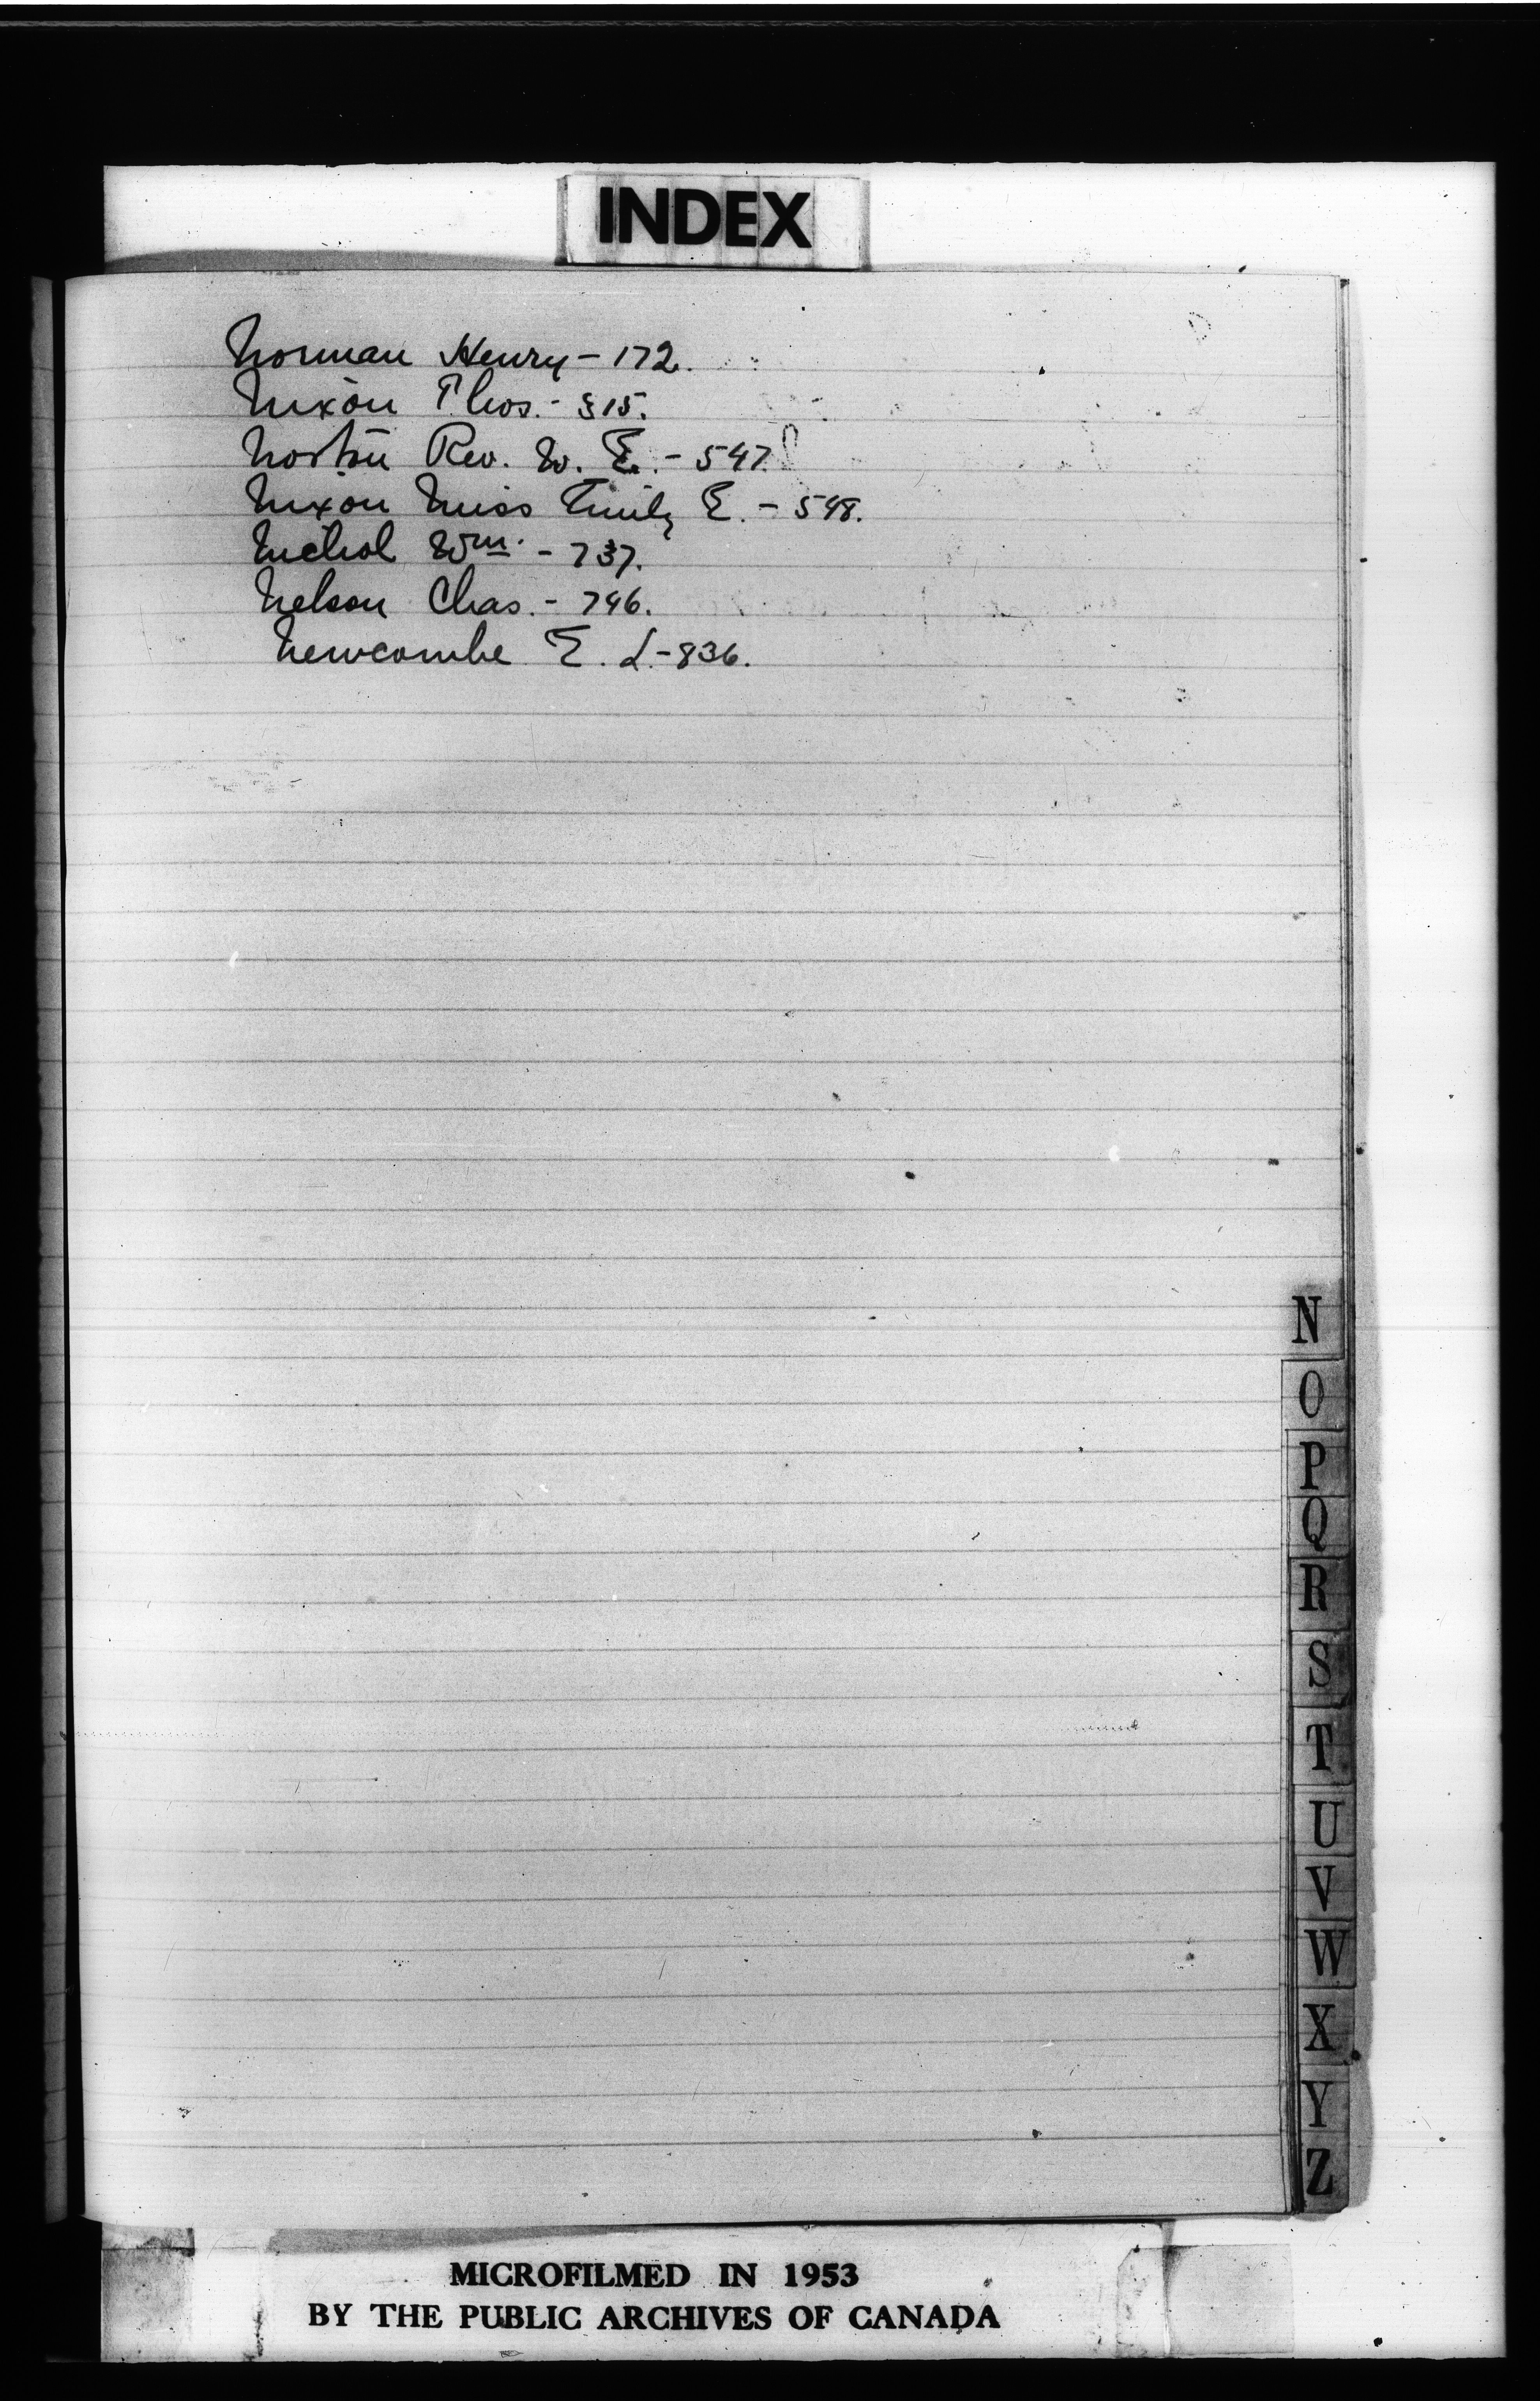 INDEX
Norman Henry - 172.
Nixon Thos. - 315.
Norton Rev. W. E. - 547.
Nixon Miss Emily E. - 548.
Nichol Wm. - 737.
Nelson Chas. - 746.
Newcombe E. L. - 836.
N
O
P
Q
R
S
T
U
V
W
X
Y
Z
MICROFILMED IN 1953
BY THE PUBLIC ARCHIVES OF CANADA